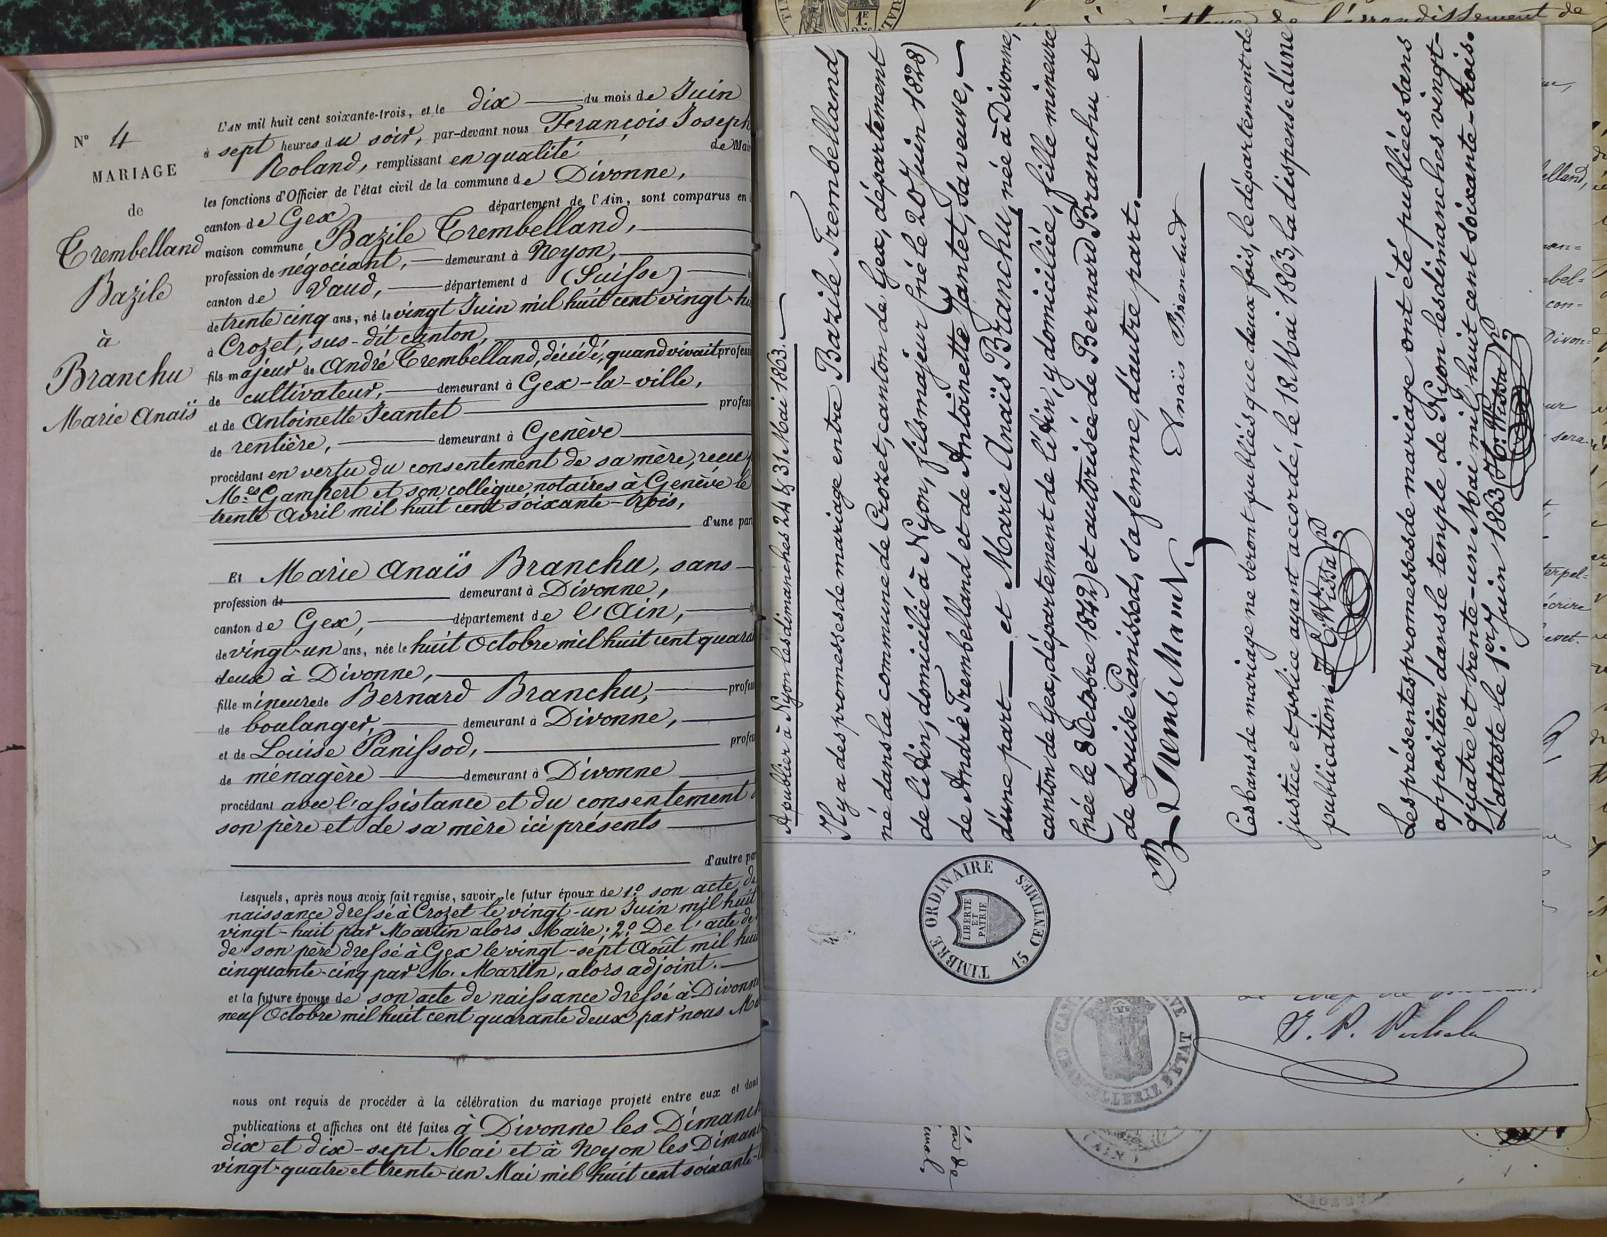 N° 4
MARIAGE
de
Trembelland
Bazile
à
Branchu
Marie Anaïs
L'AN mil huit cent soixante-trois, et le dix du mois de Juin
à sept heures du soir, par-devant nous François Joseph
Roland, remplissant en qualité de Mai
les fonctions d'Officier de l'état civil de la commune de Divonne,
canton de Gex département de l'Ain, sont comparus en
maison commune Bazile Trembelland,
profession de négociant, demeurant à Nyon,
canton de Vaud, département d (Suisse)
de trente cinq ans, né le vingt Juin mil huit cent vingt-hu
à Crozet, sus-dit canton,
fils majeur de André Trembelland, décédé, quand vivait profess
de cultivateur, demeurant à Gex-la-ville,
et de Antoinette Jeantet profess
de rentière, demeurant à Genève
procédant en vertu du consentement de sa mère, reçu p
M.es Gampert et son collègue, notaires à Genève le
trente Avril mil huit cent soixante-trois,
d'une par
Et Marie Anaïs Branchu, sans
profession de demeurant à Divonne,
canton de Gex, département de l'Ain,
de vingt-un ans, née le huit Octobre mil huit cent quara
deux à Divonne,
fille mineure de Bernard Branchu, profess
de boulanger, demeurant à Divonne,
et de Louise Panissod, profes
de ménagère demeurant à Divonne
procédant avec l'assistance et du consentement d
son père et de sa mère ici présents
d'autre par
Lesquels, après nous avoir fait remise, savoir, le futur époux de 1.° son acte de
naissance dressé à Crozet le vingt-un Juin mil huit
vingt-huit par Martin alors Maire; 2.° De l'acte de
de son père dressé à Gex le vingt-sept Août mil hui
cinquante-cinq par M. Martin, alors adjoint.
et la future épouse de son acte de naissance dressé à Divonn
neuf Octobre mil huit cent quarante deux par nous Ma
nous ont requis de procéder à la célébration du mariage projeté entre eux et dont
publications et affiches ont été faites à Divonne les Dimanch
dix et dix-sept Mai et à Nyon les Diman
vingt-quatre et trente-un Mai mil huit cent soixante-t
A publier à Nyon les dimanches 24 & 31 Mai 1863.
Il y a des promesses de mariage entre Bazile Trembelland
né dans la commune de Crozet, canton de Gex, département
de l'Ain, domicilié à Nyon, fils majeur (né le 20 Juin 1828)
de André Trembelland et de Antoinette Jantet, sa veuve,
d'une part et Marie Anaïs Branchu, née à Divonne,
canton de Gex, département de l'Ain, y domiciliée, fille mineure
(née le 8 Octobre 1842) et autorisée de Bernard Branchu et
de Louise Panissod, sa femme, d'autre part.
Anaïs Branchu
Ces bans de mariage ne seront publiés que deux fois, le département de
justice et police ayant accordé, le 18 Mai 1863, la dispense d'une
publication.
Les présentes promesses de mariage ont été publiées sans
opposition dans le temple de Nyon les dimanches vingt-
quatre et trente-un Mai mil huit cent soixante-trois.
L'atteste le 1.er Juin 1863
TIMBRE ORDINAIRE
LIBERTE
ET
PATRIE
15 CENTIMES
CHANCELLERIE D'ETAT